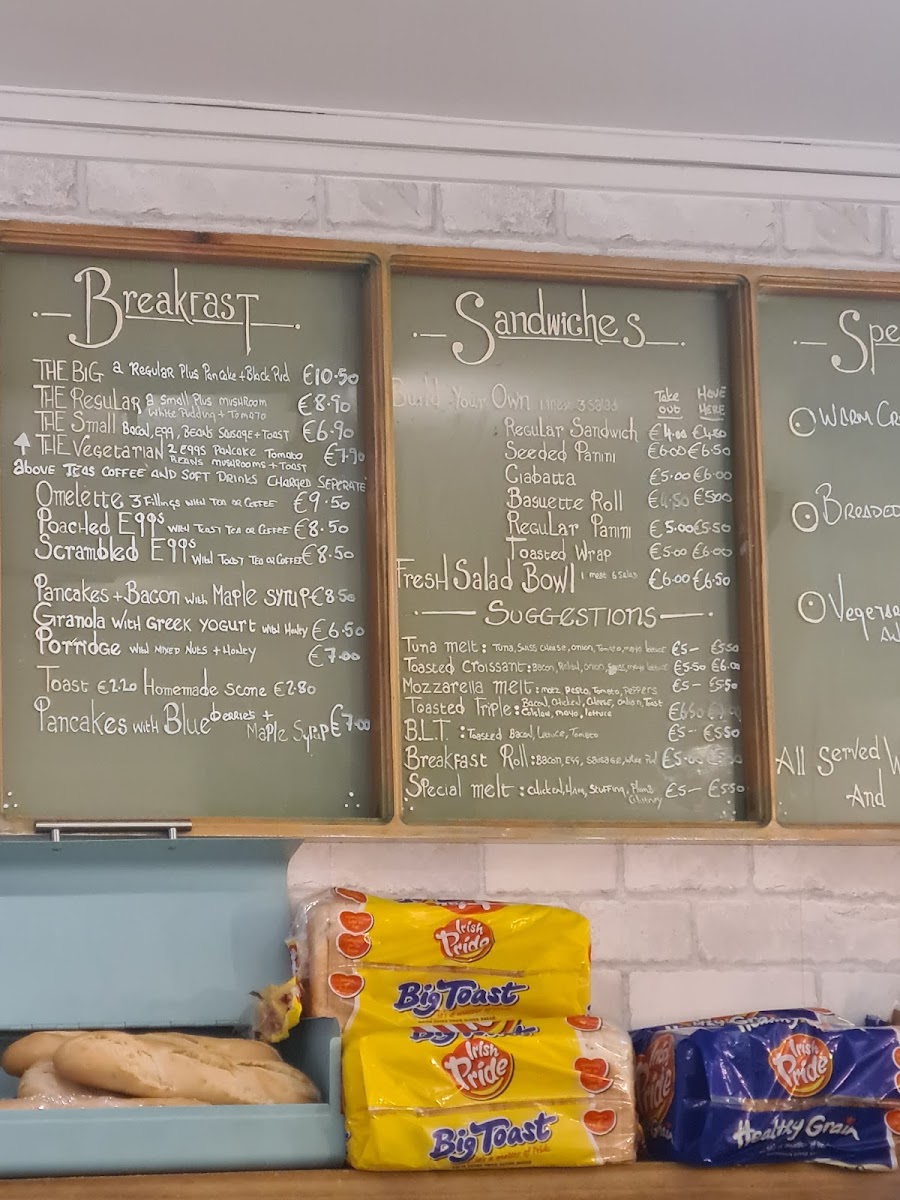 Breakfast
THE BIG a Regular Plus Pancake + Black Pud €10.50
THE Regular a Small Plus mushroom White Pudding + Tomato €8.90
THE Small Bacon, Egg, Beans Sausage + Toast €6.90
THE Vegetarian 2 eggs Pancake Tomato Beans mushrooms + Toast €7.90
above Teas Coffee and Soft Drinks charged Seperate
Omelette 3 Fillings with Tea or Coffee €9.50
Poached Eggs with Toast Tea or Coffee €8.50
Scrambled Eggs with Toast Tea or Coffee €8.50
Pancakes + Bacon with Maple Syrup €8.50
Granola with Greek yogurt with Honey €6.50
Porridge with mixed nuts + Honey €7.00
Toast €2.20 Homemade Scone €2.80
Pancakes with Blueberries + Maple Syrup €7.00
Sandwiches
Build Your Own 1 meat 3 Salad Take out Have Here
Regular Sandwich
Seeded Panini €6.00 €6.50
Ciabatta €5.00 €6.00
Baguette Roll €4.50 €5.00
Regular Panini €5.00 €5.50
Toasted Wrap €5.00 €6.00
Fresh Salad Bowl 1 meat 6 Salads €6.00 €6.50
Suggestions
Tuna melt: Tuna, Swiss cheese, onion, Tomato, mayo lettuce €5- €5.50
Toasted Croissant: Bacon, onion, mayo lettuce €5.50 €6.00
Mozzarella melt: mozz, Pesto, Tomato, Peppers €5- €5.50
Toasted Triple: Bacon, Chicken, Cheese, onion, Toast Coleslaw, mayo, lettuce €6.50
B.L.T.: Toasted Bacon, Lettuce, Tomato €5- €5.50
Breakfast Roll: Bacon, Egg, Sausage, White Pud €5.00
Special melt: Chicken, Ham, Stuffing, Plum Chutney €5- €5.50
Spe
Warm Cr
Breaded
Vegetar
All Served W
And
Irish Pride
Big Toast
Irish Pride
Big Toast
Irish Pride
Healthy Grain